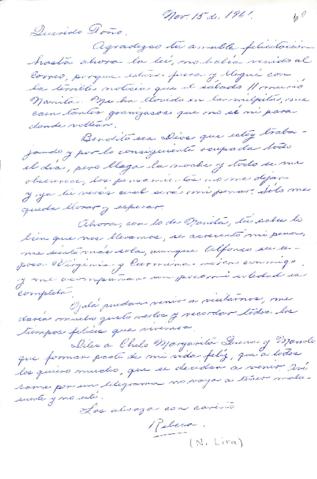 Nov 15 de 1961.
Querido Toño.
Agradezco tu amable felicitación
hasta ahora la leí, no había venido al
correo, porque estuve fuera y llegué con
la terrible noticia que el sábado 11 murió
Nanita. Me ha llovido en las milpitas, me
caen tantos granizasos que no sé ni para
donde voltear.
Bendito sea Dios que estoy traba-
jando y por lo consiguiente ocupada todo
el día, pero llega la noche y todo se me
obscurece, los pensamientos no me dejan
y ya tú verás cual será mi pesar. Sólo me
queda llorar y esperar.
Ahora, con lo de Nanita, tú sabes lo
bien que nos llevamos, se acrecentó mi pena,
me siento más sola, aunque Alfonso su es-
posa Virginia y Carmina viven conmigo
y me acompañan un poco mi soledad es
completa.
Ojalá pudieran venir a visitarnos, me
daría mucho gusto verlos y recordar todos los
tiempos felices que vivimos.
Diles a Chelo Margarita y Manolo
que forman parte de mi vida feliz, que a todos
los quiero mucho, que se decidan a venir
por un telegrama no vaya a
y no esté.
Los abraza con cariño
Rebeca
(N. Lira)